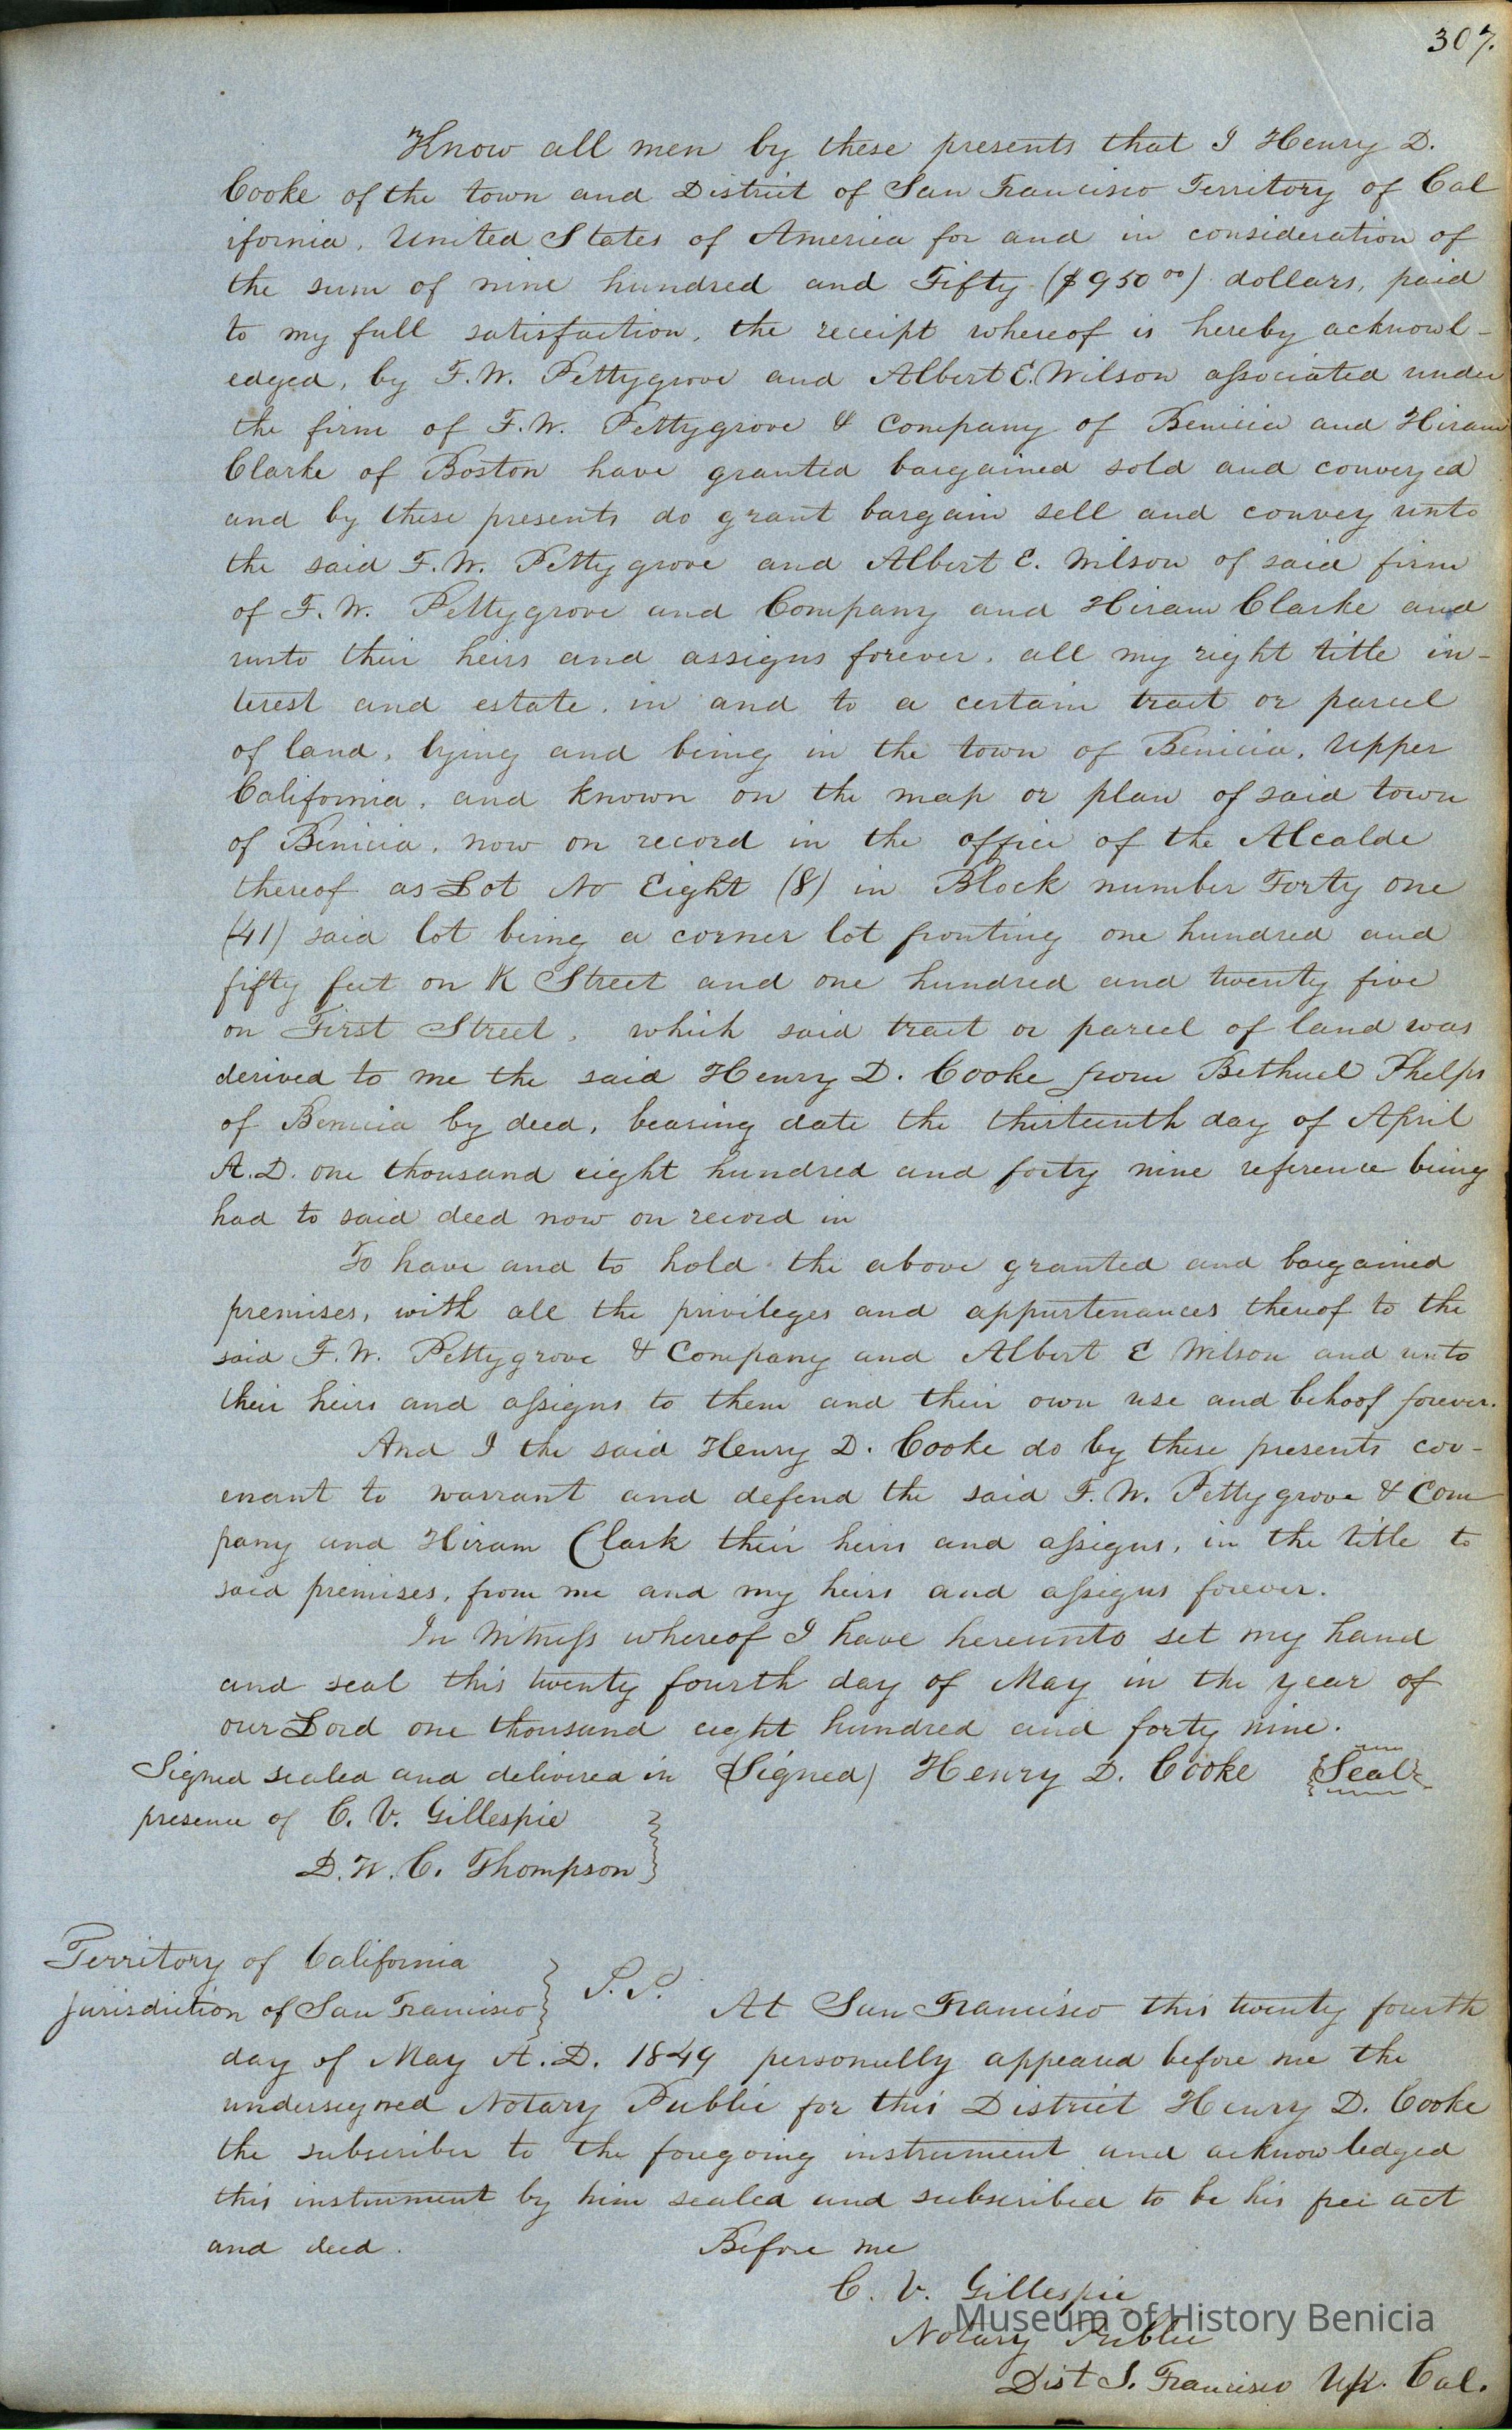 307.
Know all men by these presents that I Henry D.
Cooke of the town and District of San Francisco Territory of Cal
ifornia, United States of America for and in consideration of
the sum of nine hundred and Fifty ($950 00) dollars, paid
to my full satisfaction, the receipt whereof is hereby acknowl-
edged, by F.W. Pettygrove and Albert E. Wilson associated under
the firm of F.W. Pettygrove & Company of Benicia and Hiram
Clarke of Boston have granted bargained sold and conveyed
and by these presents do grant bargain sell and convey unto
the said F.W. Pettygrove and Albert E. Wilson of said firm
of F.W. Pettygrove and Company and Hiram Clarke and
unto their heirs and assigns forever, all my right title in-
terest and estate, in and to a certain tract or parcel
of land, lying and being in the town of Benicia, Upper
California, and known on the map or plan of said town
of Benicia, now on record in the office of the Alcalde
thereof as Lot No Eight (8) in Block number Forty one
(41) said lot being a corner lot fronting one hundred and
fifty feet on K Street and one hundred and twenty five
on First Street, which said tract or parcel of land was
derived to me the said Henry D. Cooke from Bethuel Phelps
of Benicia by deed, bearing date the thirteenth day of April
A.D. one thousand eight hundred and forty nine reference being
had to said deed now on record in
To have and to hold the above granted and bargained
premises, with all the privileges and appurtenances thereof to the
said F.W. Pettygrove & Company and Albert E Wilson and unto
their heirs and assigns to them and their own use and behoof forever.
And I the said Henry D. Cooke do by these presents cov-
enant to warrant and defend the said F.W. Pettygrove & Com
pany and Hiram Clark their heirs and assigns, in the title to
said premises, from me and my heirs and assigns forever.
In Witness whereof I have hereunto set my hand
and seal this twenty fourth day of May in the year of
our Lord one thousand eight hundred and forty nine.
Signed sealed and delivered in (Signed) Henry D. Cooke {Seal}
presence of C. V. Gillespie
D.W.C. Thompson
Territory of California
Jurisdiction of San Francisco } S.S. At San Francisco this twenty fourth
day of May A.D. 1849 personally appeared before me the
undersigned Notary Public for this District Henry D. Cooke
the subscriber to the foregoing instrument and acknowledged
this instrument by him sealed and subscribed to be his free act
and deed. Before me
C. V. Gillespie
Museum of History Benicia
Notary Public
Dist S. Francisco Up. Cal.